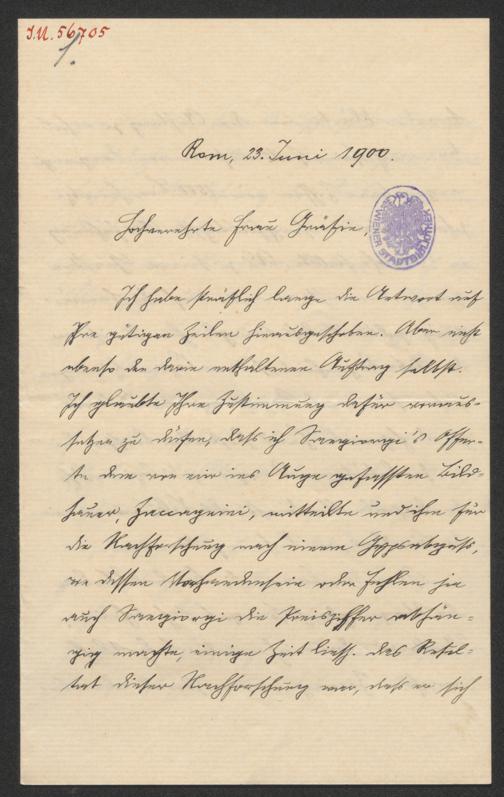 I.N. 56705
1.
Rom, 23. Juni 1900.
WIENER STADTBIBLIOTHEK
Hochverehrte Frau Gräfin,
Ich habe sträflich lange die Antwort auf
Ihre gütigen Zeilen hinausgeschoben. Aber nicht
ebenso den darin enthaltenen Auftrag selbst.
Ich glaubte Ihre Zustimmung dafür voraus-
setzen zu dürfen, dass ich Sangiorgi's Offer-
te dem von mir ins Auge gefassten Bild-
hauer, Zaccagnini, mitteilte und ihm für
die Nachforschung nach einem Gypsabguss,
von dessen Vorhandensein oder Fehlen ja
auch Sangiorgi die Preisziffer abhän-
gig machte, einige Zeit liess. Das Resul-
tat dieser Nachforschung war, dass er sich